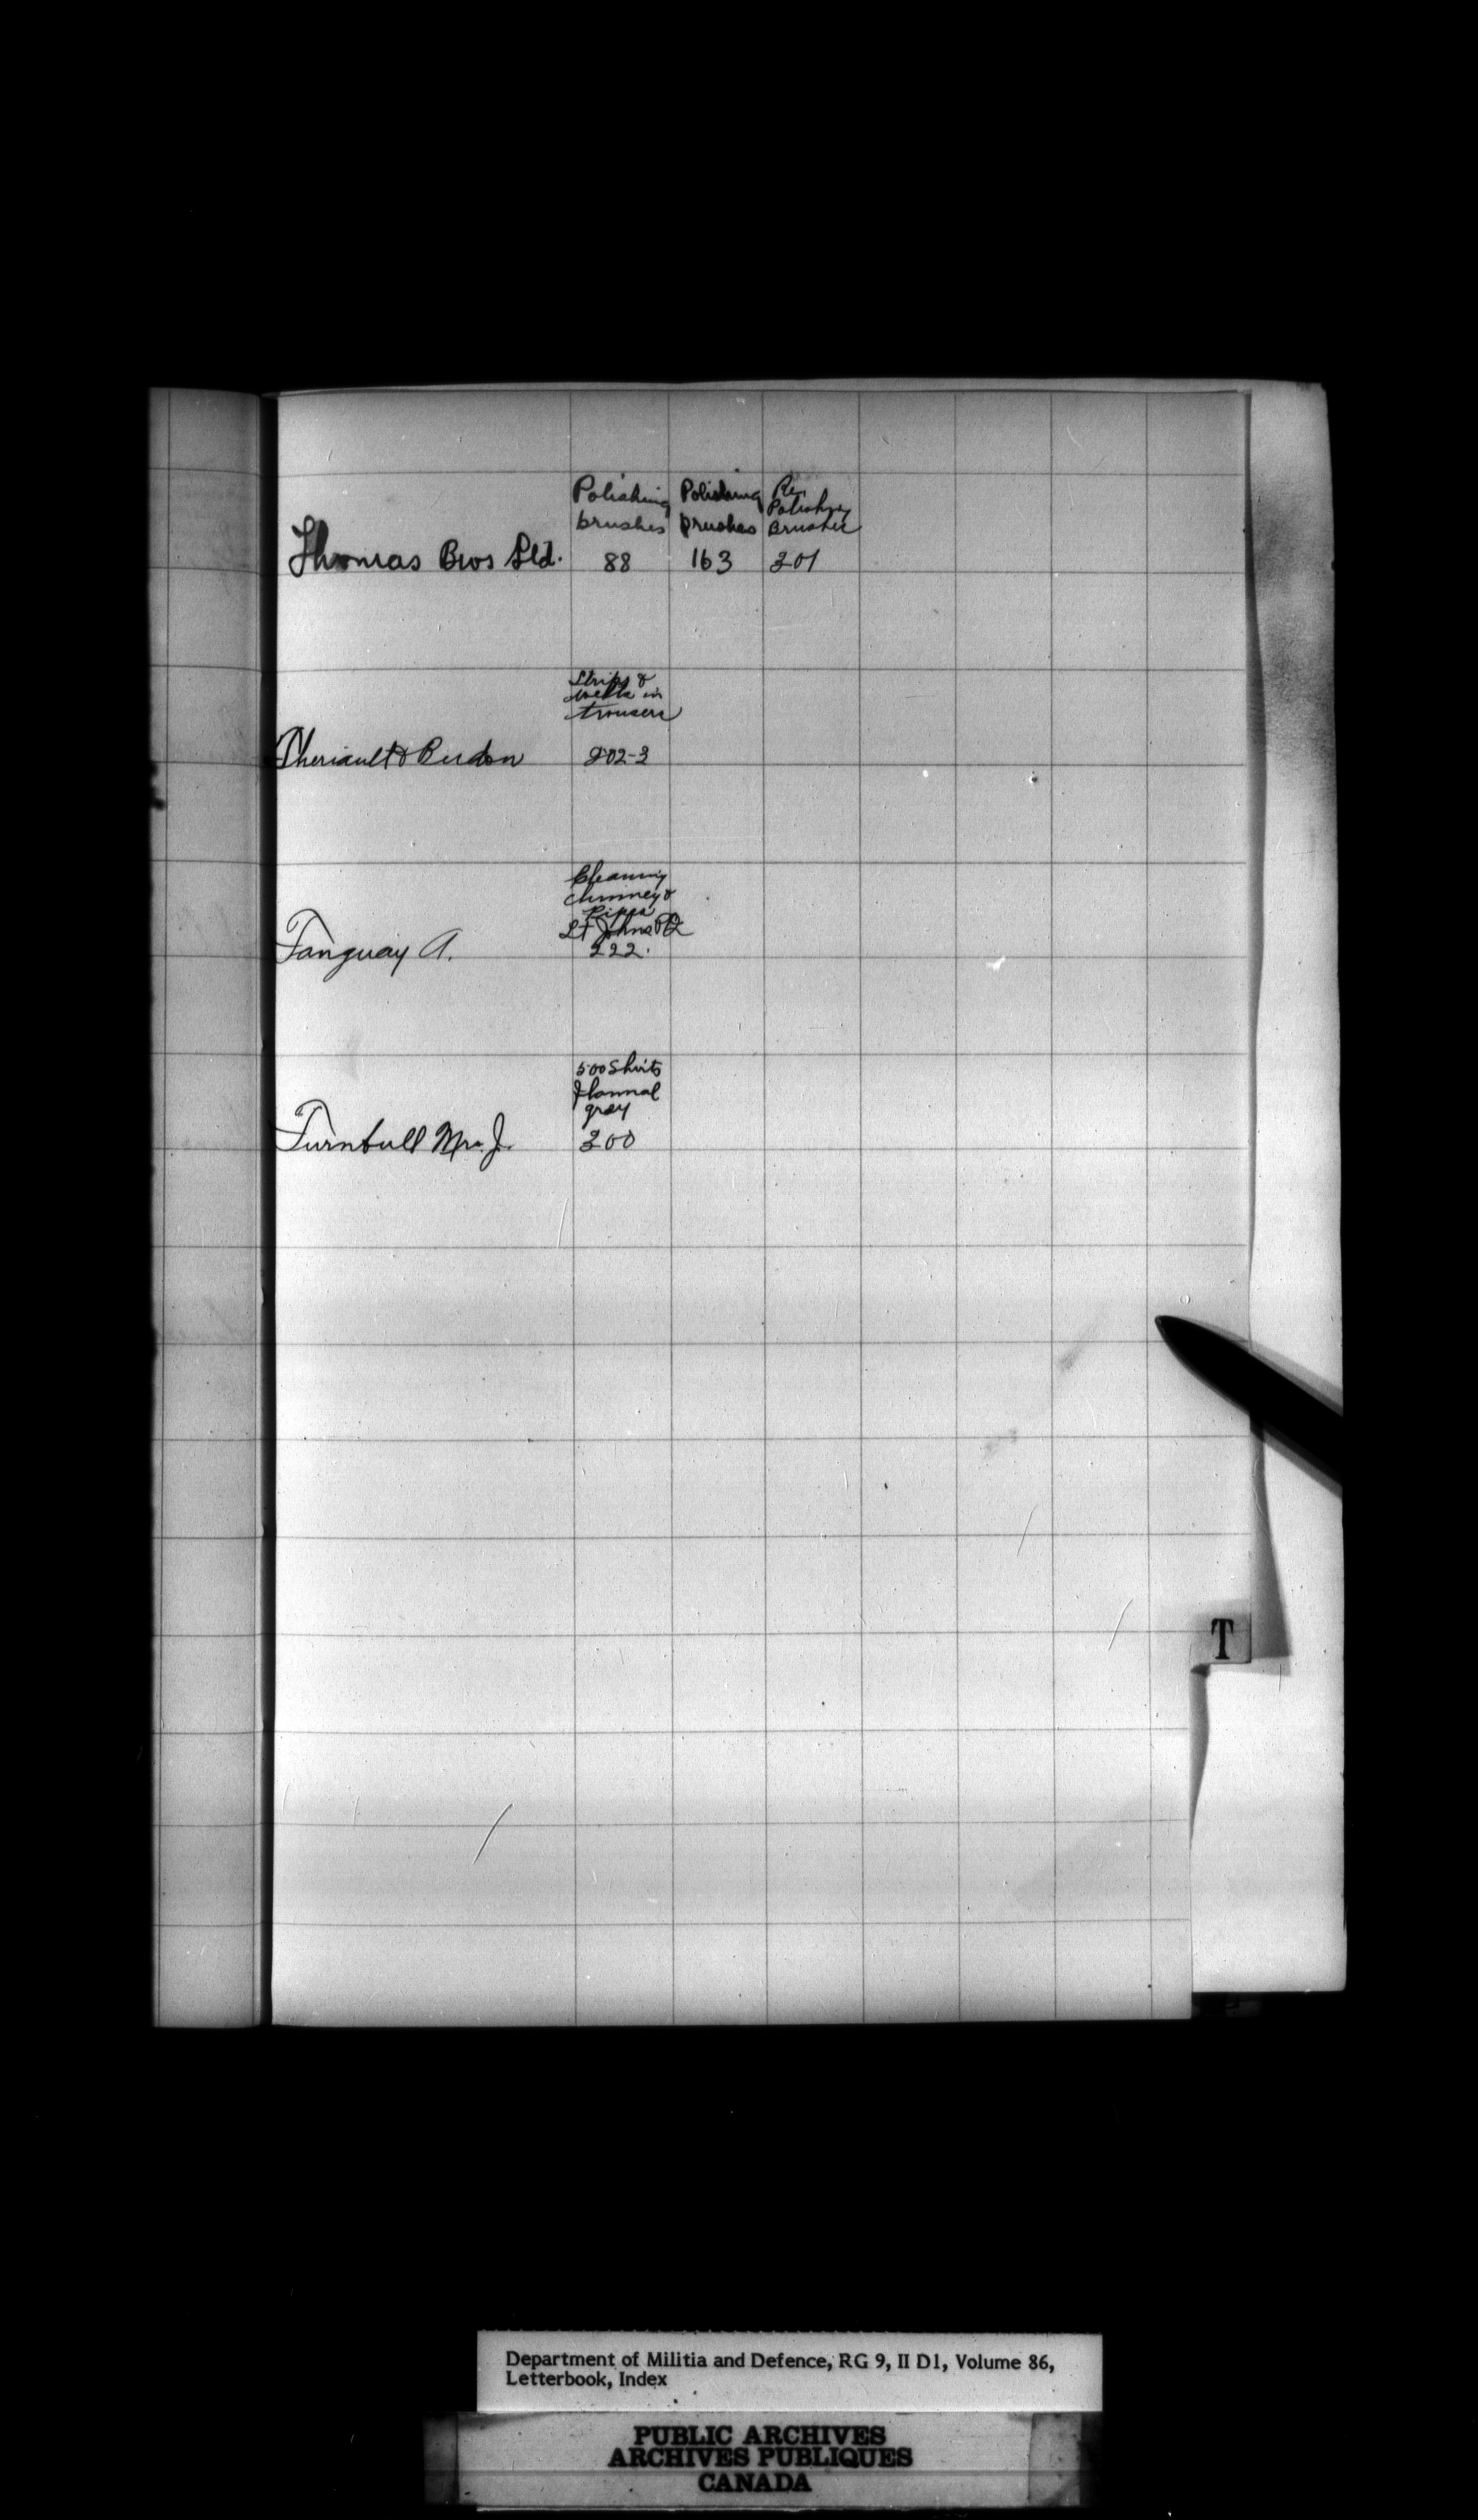 Polishing brushes
Polishing brushes
Re. Polishing Brushes
Thomas Bros Ltd. 88 163 201
Strips & welts in trousers
Theriault & 202-3
Cleaning chimney & Pipes St Johns PQ
Tanguay A. 222.
500 Shirts flannel grey
Turnbull Mr. J. 200
T
Department of Militia and Defence, RG 9, II D1, Volume 86,
Letterbook, Index
PUBLIC ARCHIVES
ARCHIVES PUBLIQUES
CANADA